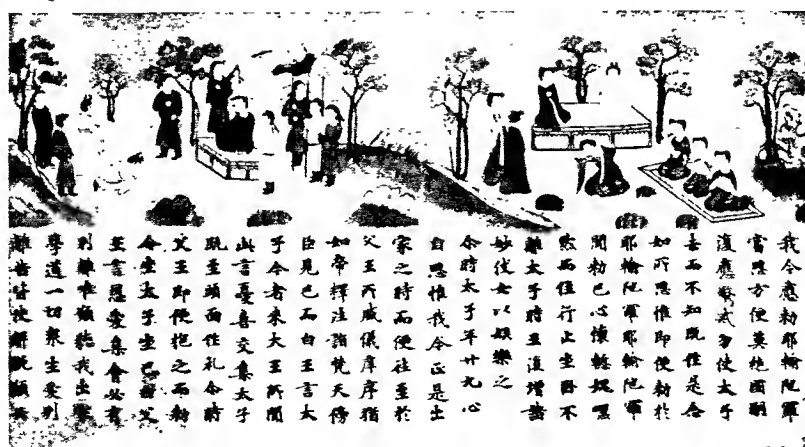 我今應勅耶輸陀羅
當思方便莫絶國嗣
復應警戒勿使太子
去而不知既作是念
如所思惟即便勅於
耶輸陀羅耶輸陀羅
聞勅已心懐慚愧嘿
然而住行止坐臥不
離太子時王復增諸
妙伎女以娯樂之
尒時太子年廿九心
自思惟我今正是出
家之時而便往至於
父王所威儀庠序猶
如帝釋往詣梵天傍
臣見已而白王言太
子今者來大王所聞
此言憂喜交集太子
既至頭面作礼尒時
父王即便抱之而勅
令坐太子坐已白父
王言恩愛集會必有
別離唯願聽我出家
學道一切衆生愛別
離苦皆使解脱願